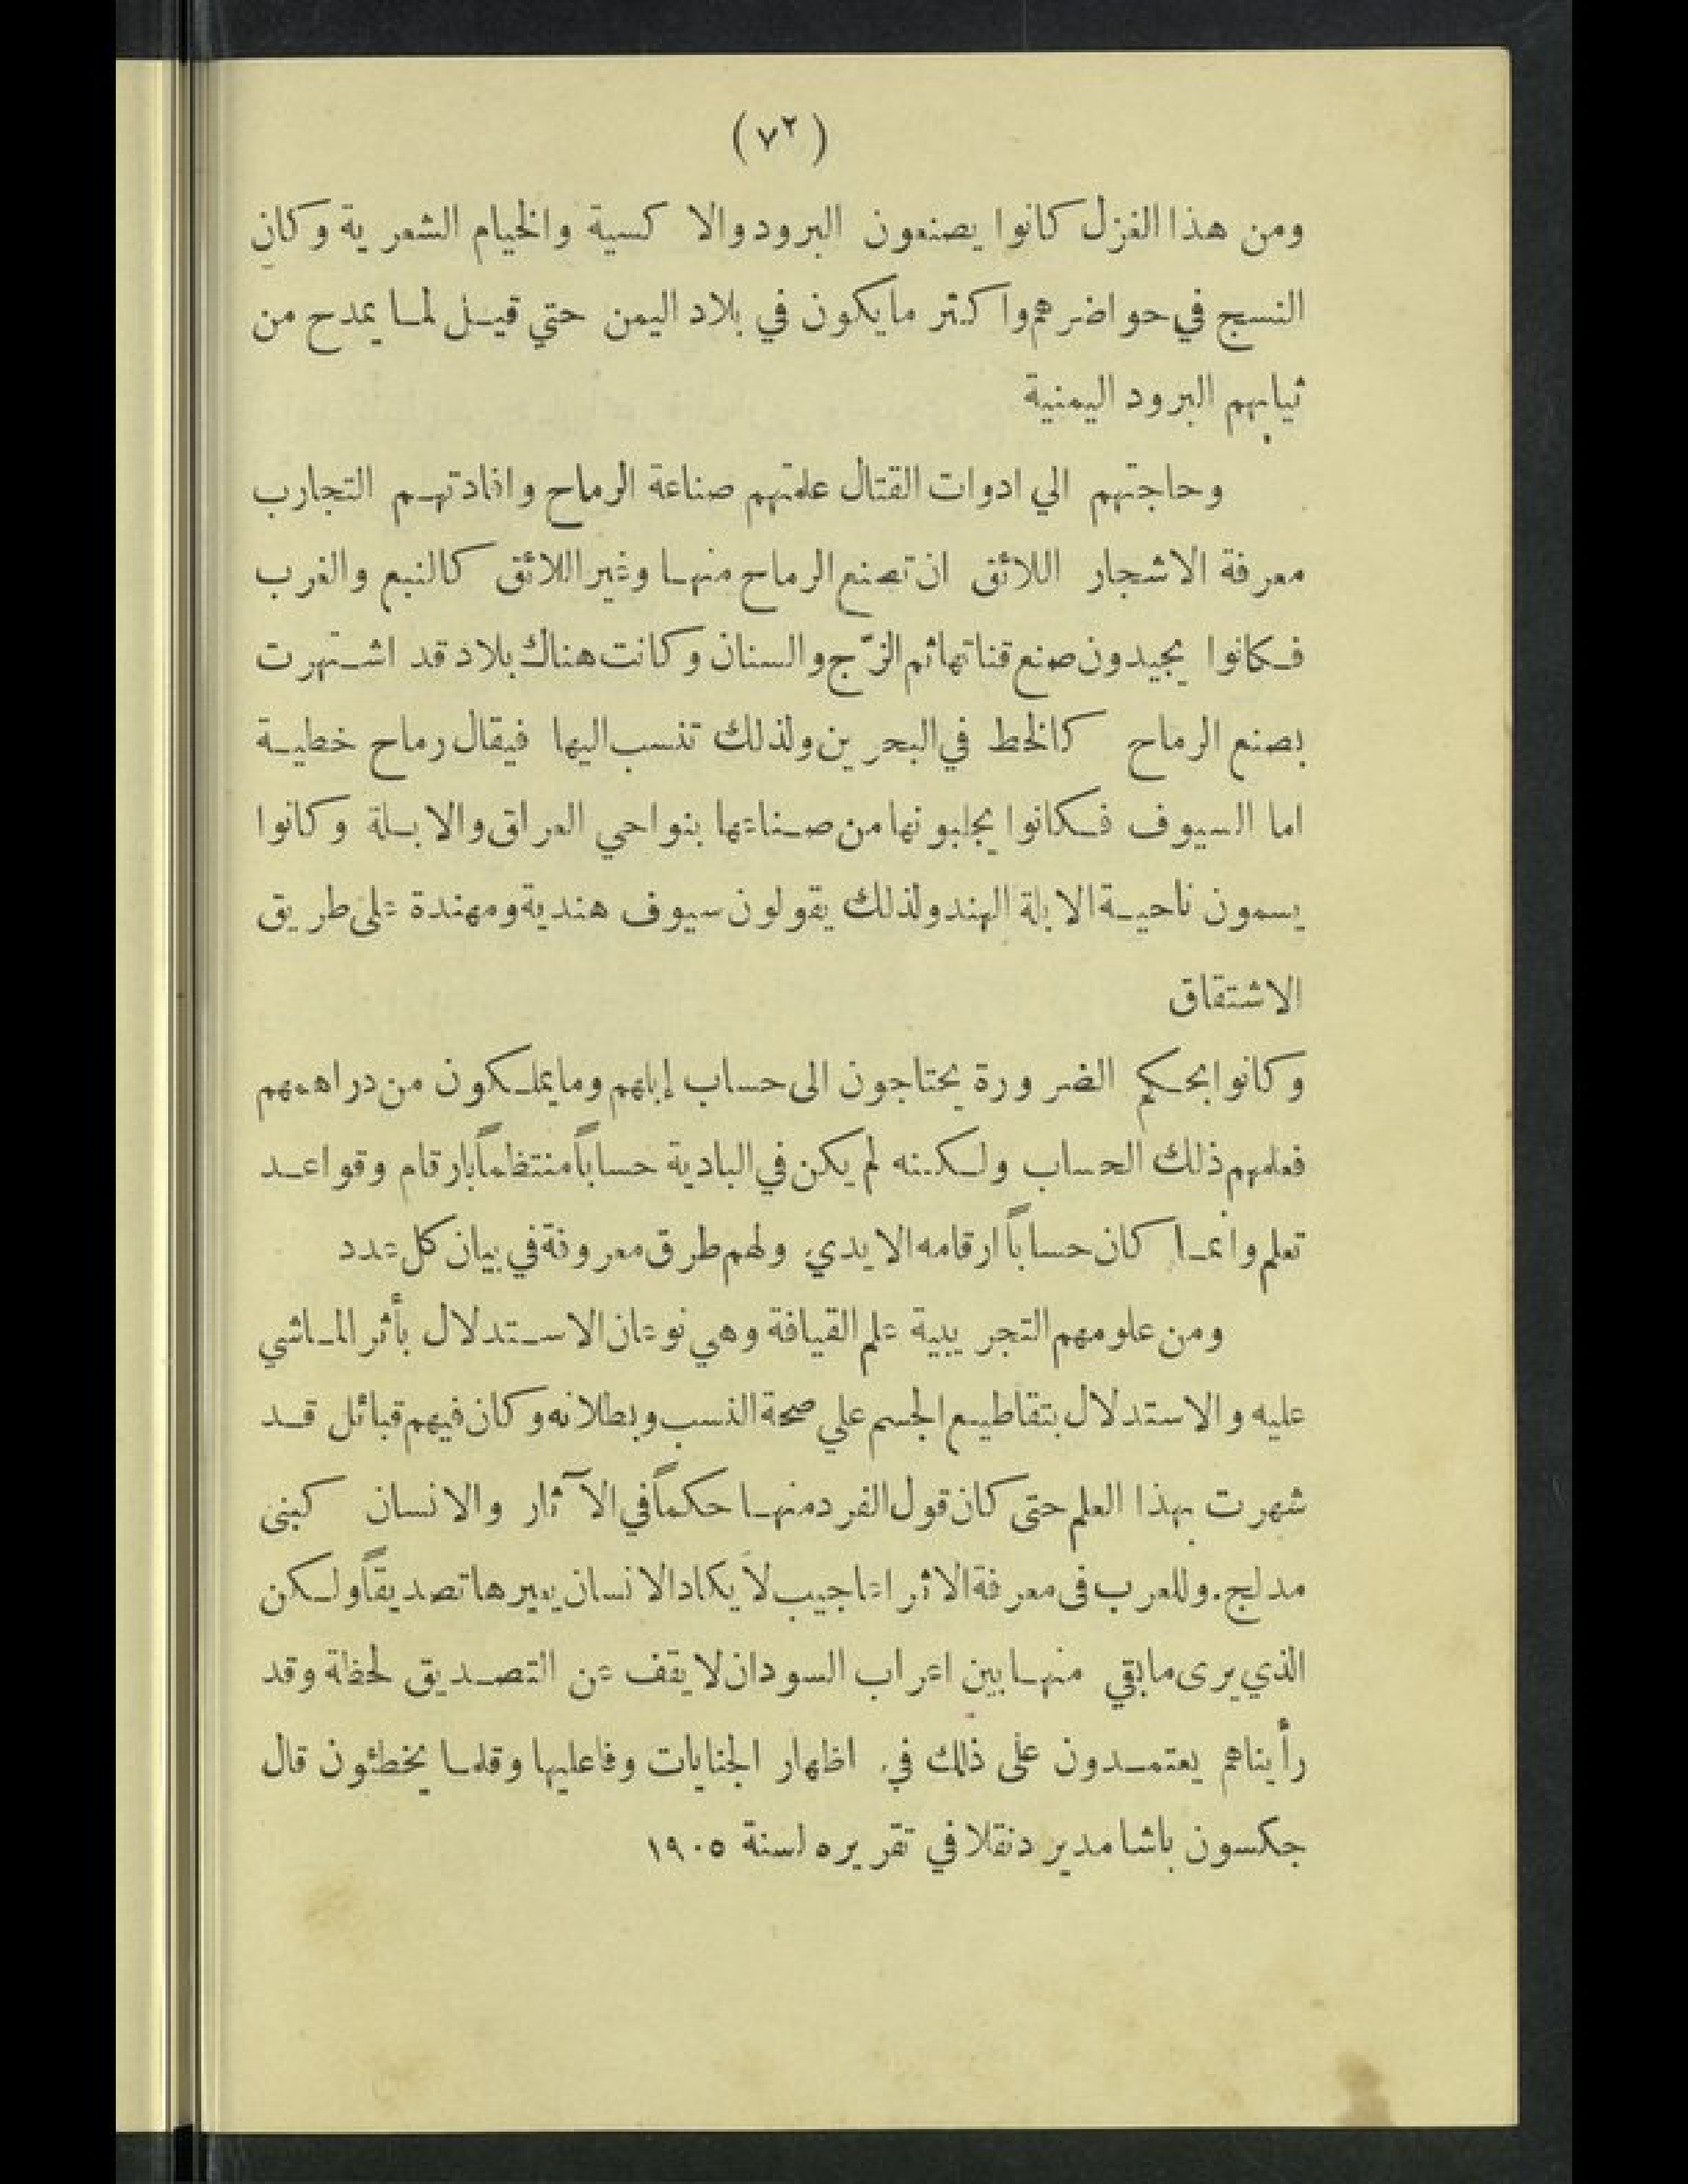 (٧٢)
ومن هذا الغزل كانوا يصنعون البرود والاكسية والخيام الشعرية وكان
النسج في حواضرهم واكثر مايكون في بلاد اليمن حتي قيل لما يمدح من
ثيابهم البرود اليمنية
وحاجتهم الي ادوات القتال علمتهم صناعة الرماح وافادتهم التجارب
معرفة الاشجار اللائق ان تصنع الرماح منها وغير اللائق كالنبع والغرب
فكانوا يجيدون صنع قناتها ثم الزّج والسنان وكانت هناك بلاد قد اشتهرت
بصنع الرماح كالخط في البحرين ولذلك تنسب اليها فيقال رماح خطية
اما السيوف فكانوا يجلبونها من صناعها بنواحي العراق والابلة وكانوا
يسمون ناحية الابلة الهند ولذلك يقولون سيوف هندية ومهندة على طريق
الاشتقاق
وكانوا بحكم الضرورة يحتاجون الى حساب إبلهم وما يملكون من دراهمهم
فعلمهم ذلك الحساب ولكنه لم يكن في البادية حساباً منتظماً بارقام وقواعد
تعلم وانما كان حساباً ارقامه الايدي ولهم طرق معروفة في بيان كل عدد
ومن علومهم التجريبية علم القيافة وهي نوعان الاستدلال بأثر الماشي
عليه والاستدلال بتقاطيع الجسم علي صحة النسب وبطلانه وكان فيهم قبائل قد
شهرت بهذا العلم حتى كان قول الفرد منها حكماً في الآثار والانسان كبنى
مدلج. وللعرب فى معرفة الاثر اعاجيب لا يكاد الانسان يعيرها تصديقاً ولكن
الذي يرى مابقي منها بين اعراب السودان لا يقف عن التصديق لحظة وقد
رأيناهم يعتمدون على ذلك في اظهار الجنايات وفاعليها وقلما يخطئون قال
جكسون باشا مدير دنقلا في تقريره لسنة ١٩٠٥